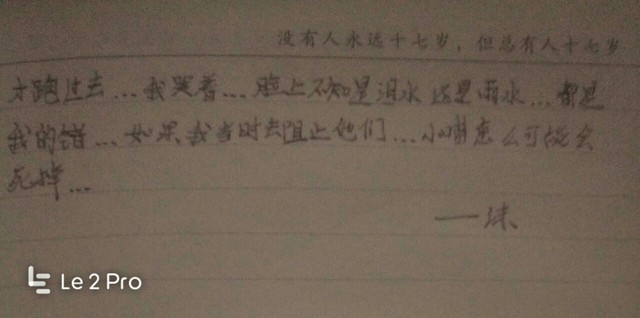 没有人永远十七岁，但总有人十七岁
才跑过去...我哭着...脸上不知是泪水还是雨水...都是
我的错...如果我当时去阻止他们...小晴怎么可能会
死掉...
——沫
Le 2 Pro